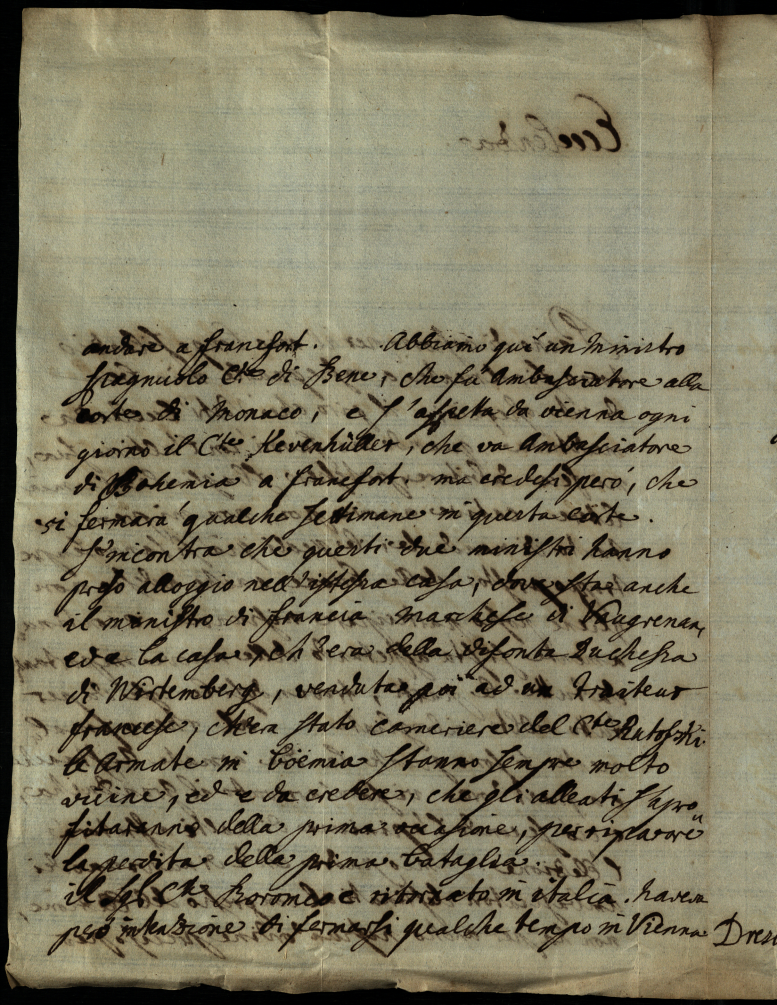 andare a francfort. Abbiamo qui un Ministro
spagnuolo Cte di Bene, che fu Ambasciatore alla
corte di Monaco, e s'aspetta da vienna ogni
giorno il Cte Kevenhüller, che va Ambasciatore
di Bohemia a francfort, ma credesi però, che
si fermarà qualche settimane in questa corte.
S'incontra che questi due ministri hanno
preso alloggio nell'istessa casa, dove sta anche
il ministro di francia Marchese di Vaugrenan,
ed e la casa, ch'era della difonta Duchessa
di Wirtemberg, venduta poi ad un Traiteur
francese, ch'era stato cameriere del Cte Rutofski.
le Armate in boëmia stanno sempre molto
vicine, ed e da credere, che gli alleati s'apro
fitaranno della prima occasione, per riparare
la perdita della prima bataglia.
il Cte e ritornato in italia. havera
però intenzione di fermarsi qualche tempo in Vienna